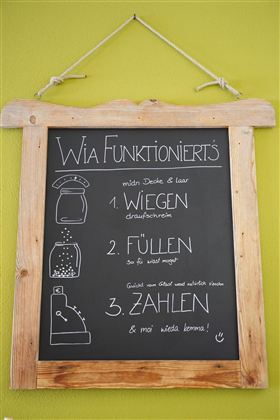 WIA FUNKTIONIERT'S
midn Decke & laar
1. WIEGEN
draufschreim
2. FÜLLEN
so fü wiast mogst
Gwicht vom Glasl wead natürlich
3. ZAHLEN
€
& moi wieda kemma!